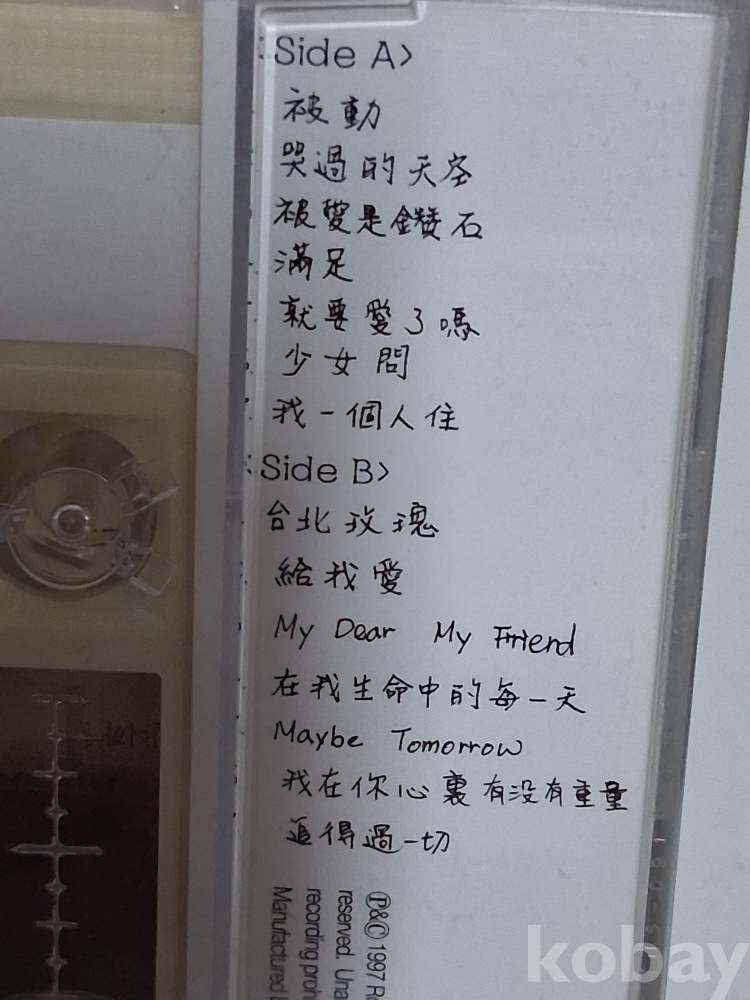 Side A>
被動
哭過的天空
被愛是鑽石
滿足
就要愛了嗎
少女問
我一個人住
Side B>
台北玫瑰
給我愛
My Dear My Friend
在我生命中的每一天
Maybe Tomorrow
我在你心裏有沒有重量
追得過一切
℗&© 1997 R
reserved. Una
recording prohi
Manufactured
kobay